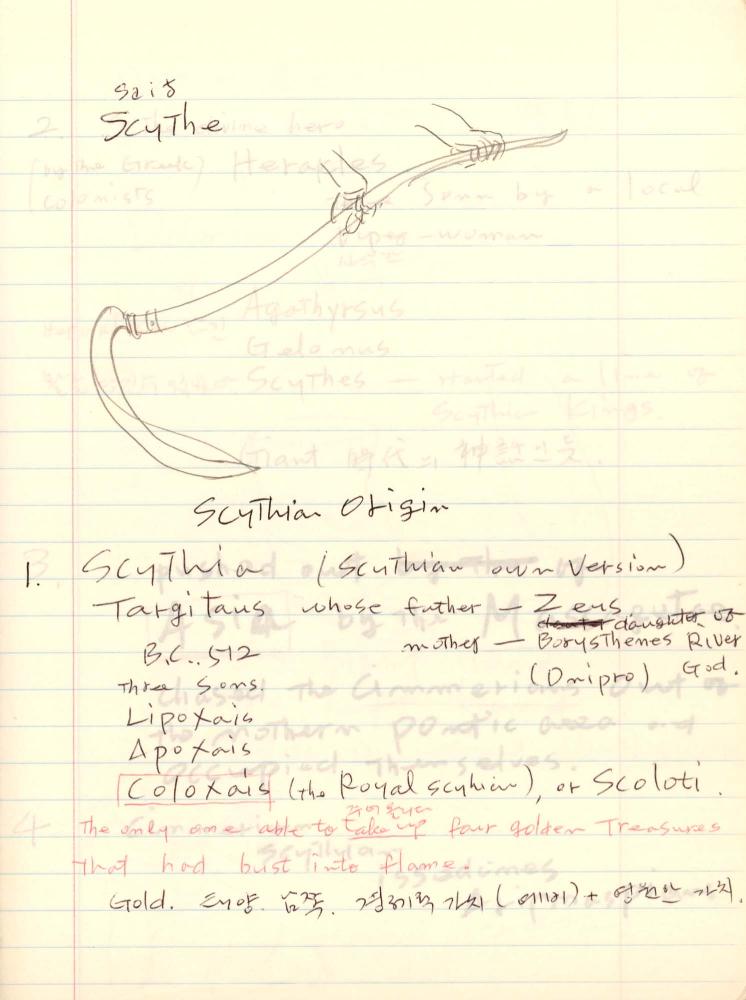 saið
Scythe
Scythian Origin
1. Scythia (Scuthian own Version)
Targitaus whose father — Zeus
daughter of
B.C.. 512 mother — Borysthenes River
(Dnipro) God.
Three Sons.
Lipoxais
Apoxais
Coloxais (the Royal scyhian), or Scoloti.
주어올리다
The only one able to take up four golden Treasures
That had bust into flame.
Gold. 태양. 남쪽. 경제적 가치 (예비) + 영원한 가치.